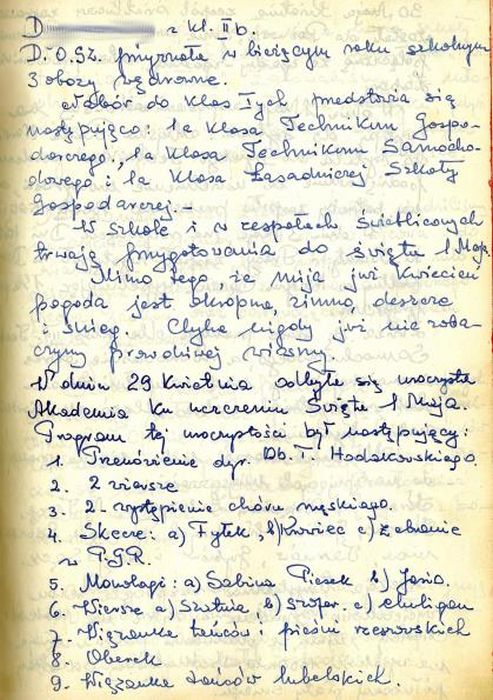 D z kl. II b.
D.O.Sz. przyznała w bieżącym roku szkolnym
3 obozy wędrowne.
Nabór do klas I-ych przedstawia się
następująco: 1a klasa Technikum Gospo-
darczego, 1a klasa Technikum Samocho-
dowego i 1a klasa Zasadniczej Szkoły
Gospodarczej. -
W szkole i w zespołach świetlicowych
trwają przygotowania do święta 1 Maja.
Mimo tego, że mija już kwiecień
pogoda jest okropna, zimno, deszcze
i śnieg. Chyba nigdy już nie zoba-
czymy prawdziwej wiosny.
W dniu 29 kwietnia odbyła się uroczysta
Akademia ku uczczeniu Święta 1 Maja.
Program tej uroczystości był następujący:
1. Przemówienie dyr. Ob. T. Hodakowskiego.
2. 2 wiersze
3. 2- wystąpienie chóru męskiego.
4. Skecze: a) Fytek, b) c) Zebranie
w P.G.R.
5. Monologi: a) Sabina Piesek b) Jasio.
6. Wiersze a) Szatnia, b) c) chuligan
7. Wiązanka tańców i pieśni rzeszowskich
8. Oberek
9. Wiązanka tańców lubelskich.